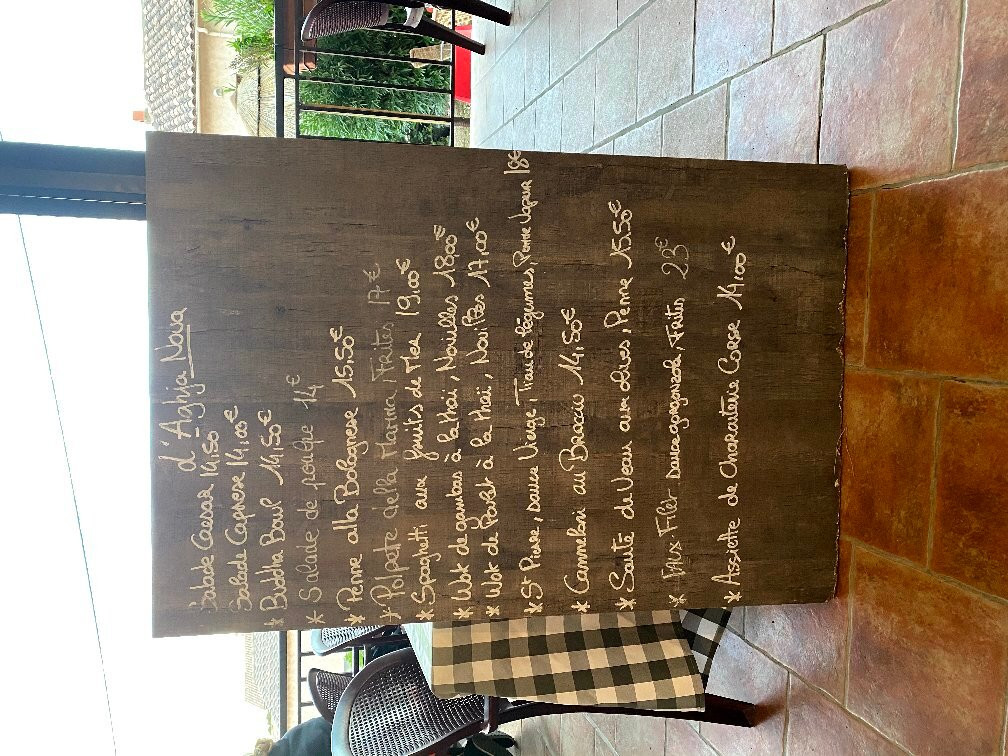 d'Aghja Nova
Salade Caesar 14,50
Salade Caprese 14,00€
* Buddha Bowl 14,50€
* Salade de poulpe 14€
* Penne alla Bolognese 15,50€
* Polpete della Mamma, Frites 17€
* Spaghetti aux fruits de Mer 19,00€
* Wok de gambas à la thaï, Nouilles 18,00€
* Wok de Poulet à la thaï, Nouilles 17,00€
* St Pierre, Sauce Vierge, Tian de légumes, Pomme Vapeur 18€
* Cannelloni au Brocciu 14,50€
* Sauté de Veau aux olives, Penne 15,50€
* Faux-Filet Sauce gorgonzola, Frites 23€
* Assiette de Charcuterie Corse 14,00€